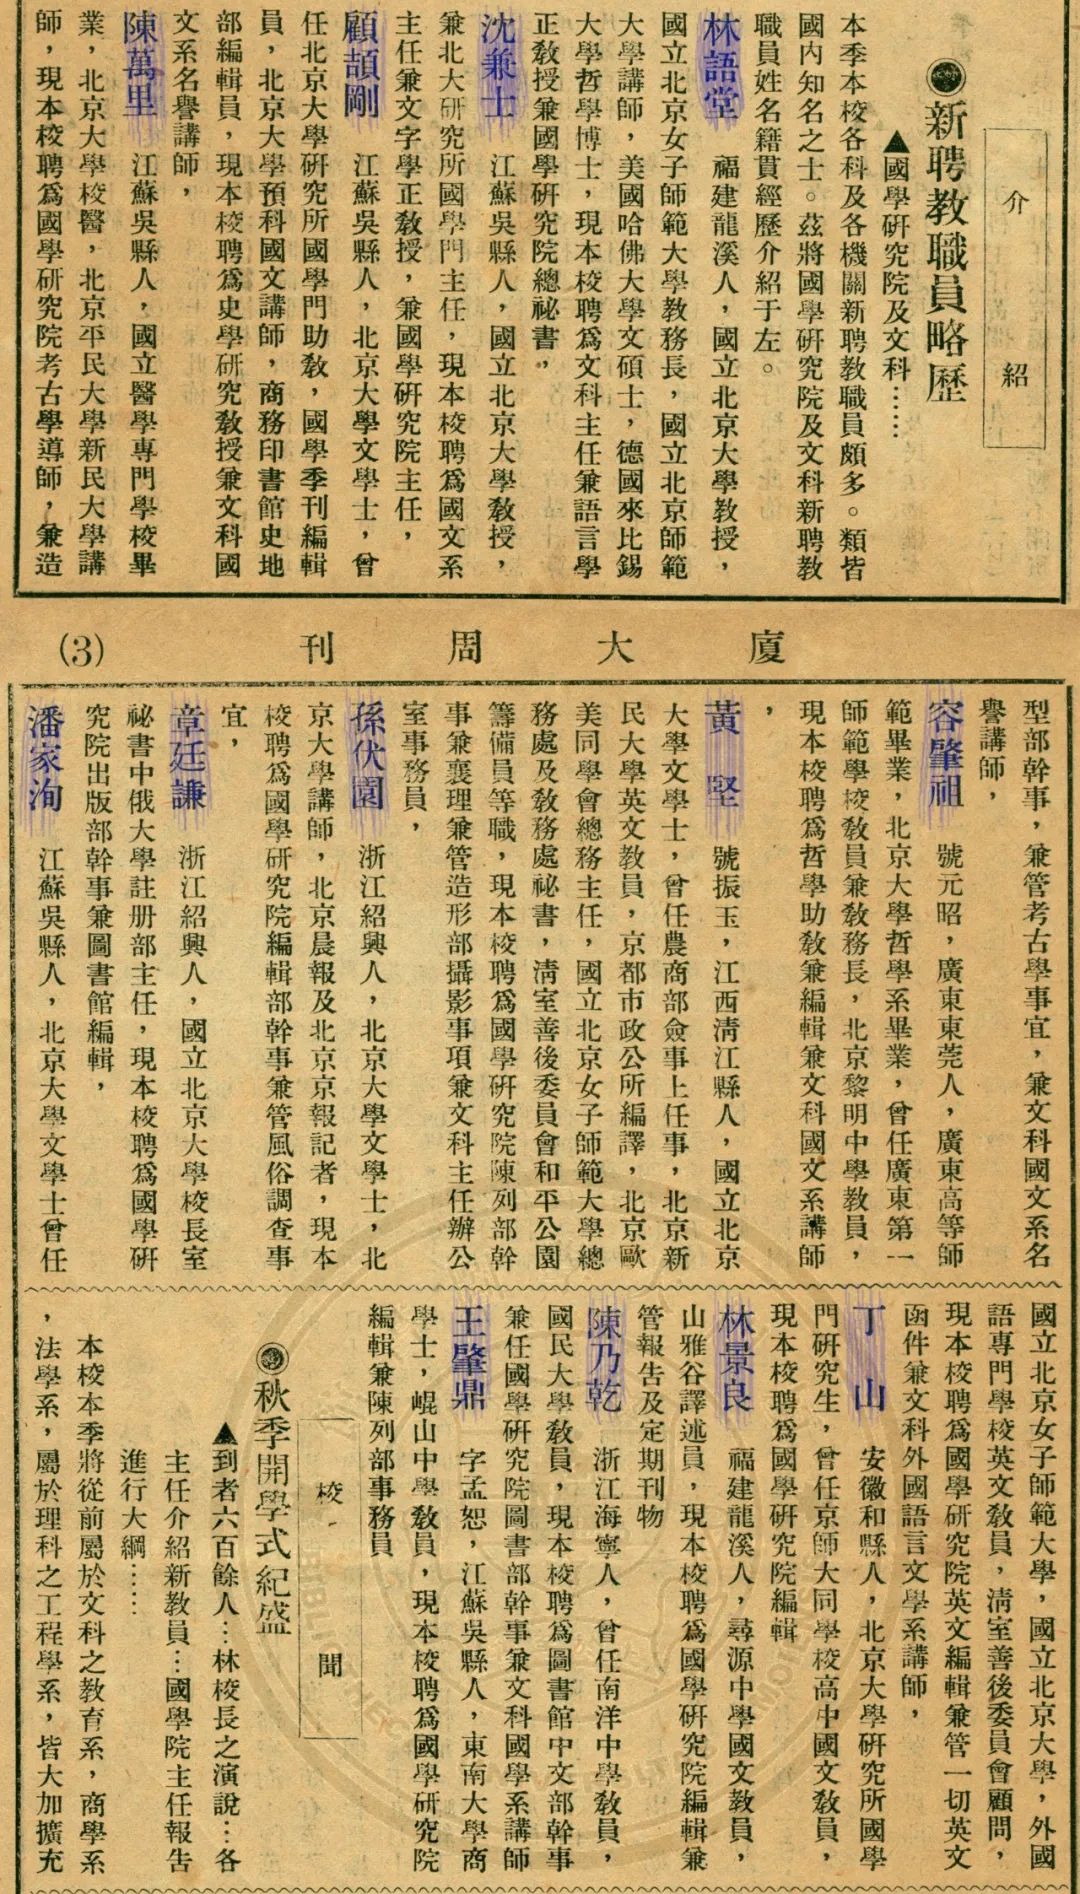 介紹
◉新聘教職員略歷
▲國學研究院及文科……
本季本校各科及各機關新聘教職員頗多。類皆
國內知名之士。茲將國學研究院及文科新聘教
職員姓名籍貫經歷介紹于左。
林語堂　福建龍溪人，國立北京大學教授，
國立北京女子師範大學教務長，國立北京師範
大學講師，美國哈佛大學文碩士，德國來比錫
大學哲學博士，現本校聘爲文科主任兼語言學
正教授兼國學研究院總祕書，
沈兼士　江蘇吳縣人，國立北京大學教授，
兼北大研究所國學門主任，現本校聘爲國文系
主任兼文字學正教授，兼國學研究院主任，
顧頡剛　江蘇吳縣人，北京大學文學士，曾
任北京大學研究所國學門助教，國學季刊編輯
員，北京大學預科國文講師，商務印書館史地
部編輯員，現本校聘爲史學研究教授兼文科國
文系名譽講師，
陳萬里　江蘇吳縣人，國立醫學專門學校畢
業，北京大學校醫，北京平民大學新民大學講
師，現本校聘爲國學研究院考古學導師，兼造
廈大周刊
(3)
型部幹事，兼管考古學事宜，兼文科國文系名
譽講師，
容肇祖　號元昭，廣東東莞人，廣東高等師
範畢業，北京大學哲學系畢業，曾任廣東第一
師範學校教員兼教務長，北京黎明中學教員，
現本校聘爲哲學助教兼編輯兼文科國文系講師
，
黃堅　號振玉，江西清江縣人，國立北京
大學文學士，曾任農商部僉事上任事，北京新
民大學英文教員，京都市政公所編譯，北京歐
美同學會總務主任，國立北京女子師範大學總
務處及教務處祕書，清室善後委員會和平公園
籌備員等職，現本校聘爲國學研究院陳列部幹
事兼襄理兼管造形部攝影事項兼文科主任辦公
室事務員，
孫伏園　浙江紹興人，北京大學文學士，北
京大學講師，北京晨報及北京京報記者，現本
校聘爲國學研究院編輯部幹事兼管風俗調查事
宜，
章廷謙　浙江紹興人，國立北京大學校長室
祕書中俄大學註册部主任，現本校聘爲國學研
究院出版部幹事兼圖書館編輯，
潘家洵　江蘇吳縣人，北京大學文學士曾任
國立北京女子師範大學，國立北京大學，外國
語專門學校英文教員，清室善後委員會顧問，
現本校聘爲國學研究院英文編輯兼管一切英文
函件兼文科外國語言文學系講師，
丁山　安徽和縣人，北京大學研究所國學
門研究生，曾任京師大同學校高中國文教員，
現本校聘爲國學研究院編輯
林景良　福建龍溪人，尋源中學國文教員，
山雅谷譯述員，現本校聘爲國學研究院編輯兼
管報告及定期刊物
陳乃乾　浙江海寧人，曾任南洋中學教員，
國民大學教員，現本校聘爲圖書館中文部幹事
兼任國學研究院圖書部幹事兼文科國學系講師
王肇鼎　字孟恕，江蘇吳縣人，東南大學商
學士，崐山中學教員，現本校聘爲國學研究院
編輯兼陳列部事務員
校聞
◉秋季開學式紀盛
▲到者六百餘人…林校長之演說…各
主任介紹新教員…國學院主任報告
進行大綱……
本校本季將從前屬於文科之教育系，商學系
，法學系，屬於理科之工程學系，皆大加擴充